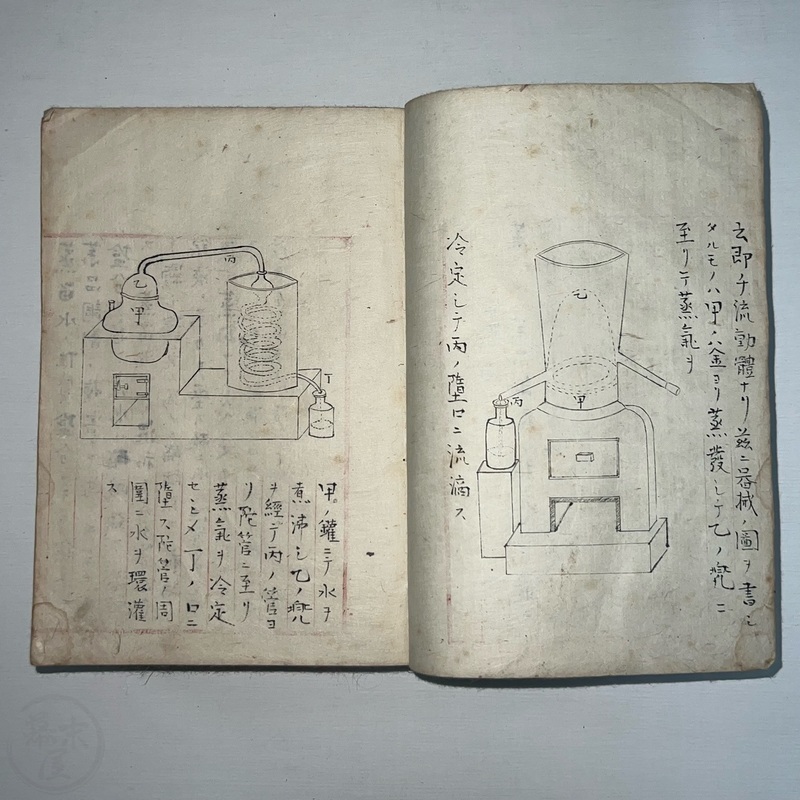 云即チ流動體ナリ茲ニ器械ノ圖ヲ書シ
タルモノハ甲ノ釜ヨリ蒸發シテ乙ノ兜ニ
至リテ蒸氣ヲ
乙
甲
丙
冷定シテ丙ノ墮口ニ流滴ス
丙
乙
甲
丁
甲ノ鑵ニテ水ヲ
煮沸シ乙ノ兜
ヲ經テ丙ノ管ヨ
リ陀管ニ至リ
蒸氣ヲ冷定
センメ丁ノ口ニ
墮ス陀管ノ周
圍ニ水ヲ環灌
ス
幕末屋